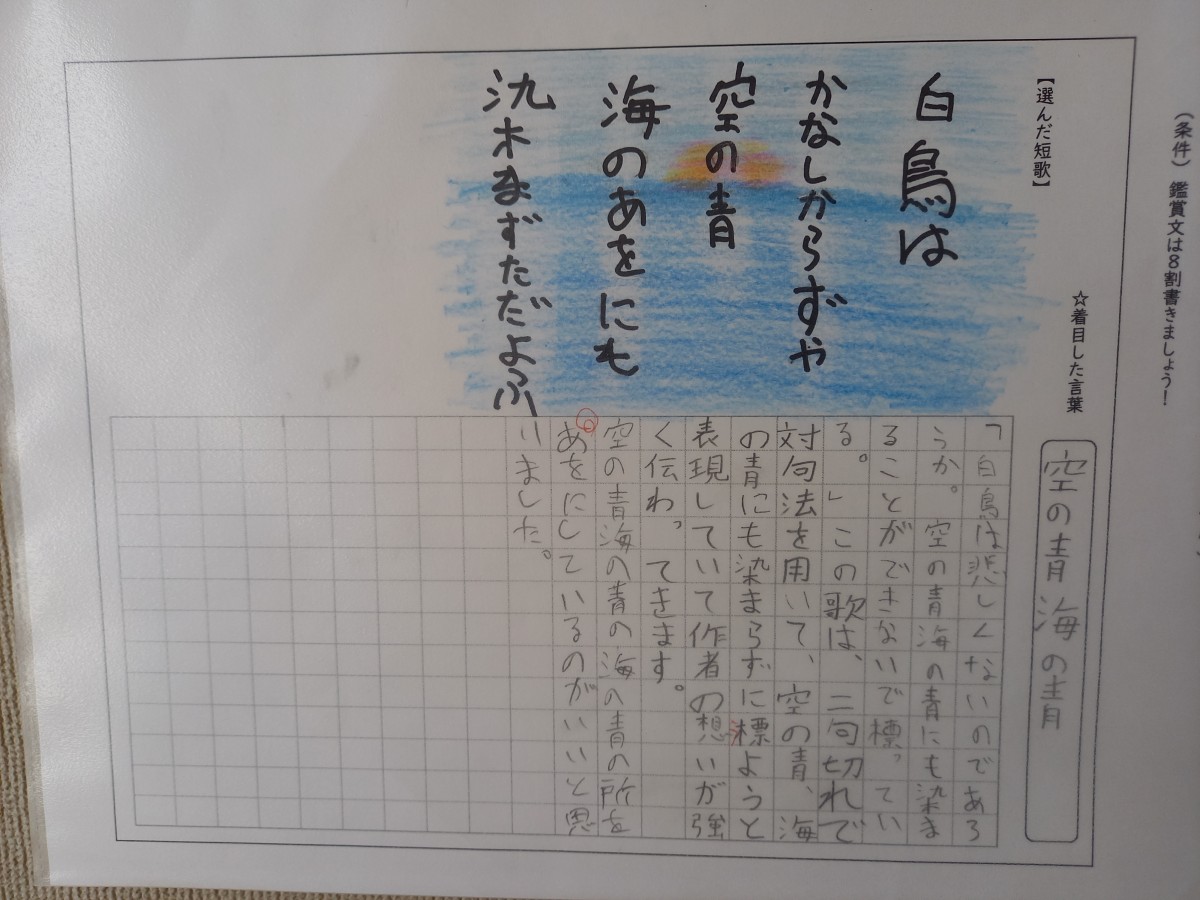 (条件) 鑑賞文は8割書きましょう!
☆着目した言葉
空の青海の青
【選んだ短歌】
白鳥は
かなしからずや
空の青
海のあをにも
染まずただよふ
「白鳥は悲しくないのであろ
うか。空の青海の青にも染ま
ることができないで標ってい
る。」この歌は、二句切れで
対句法を用いて、空の青、海
の青にも染まらずに標ようと
表現していて作者の想いが強
く伝わってきます。
空の青海の青の海の青の所を
あをにしているのがいいと思
いました。